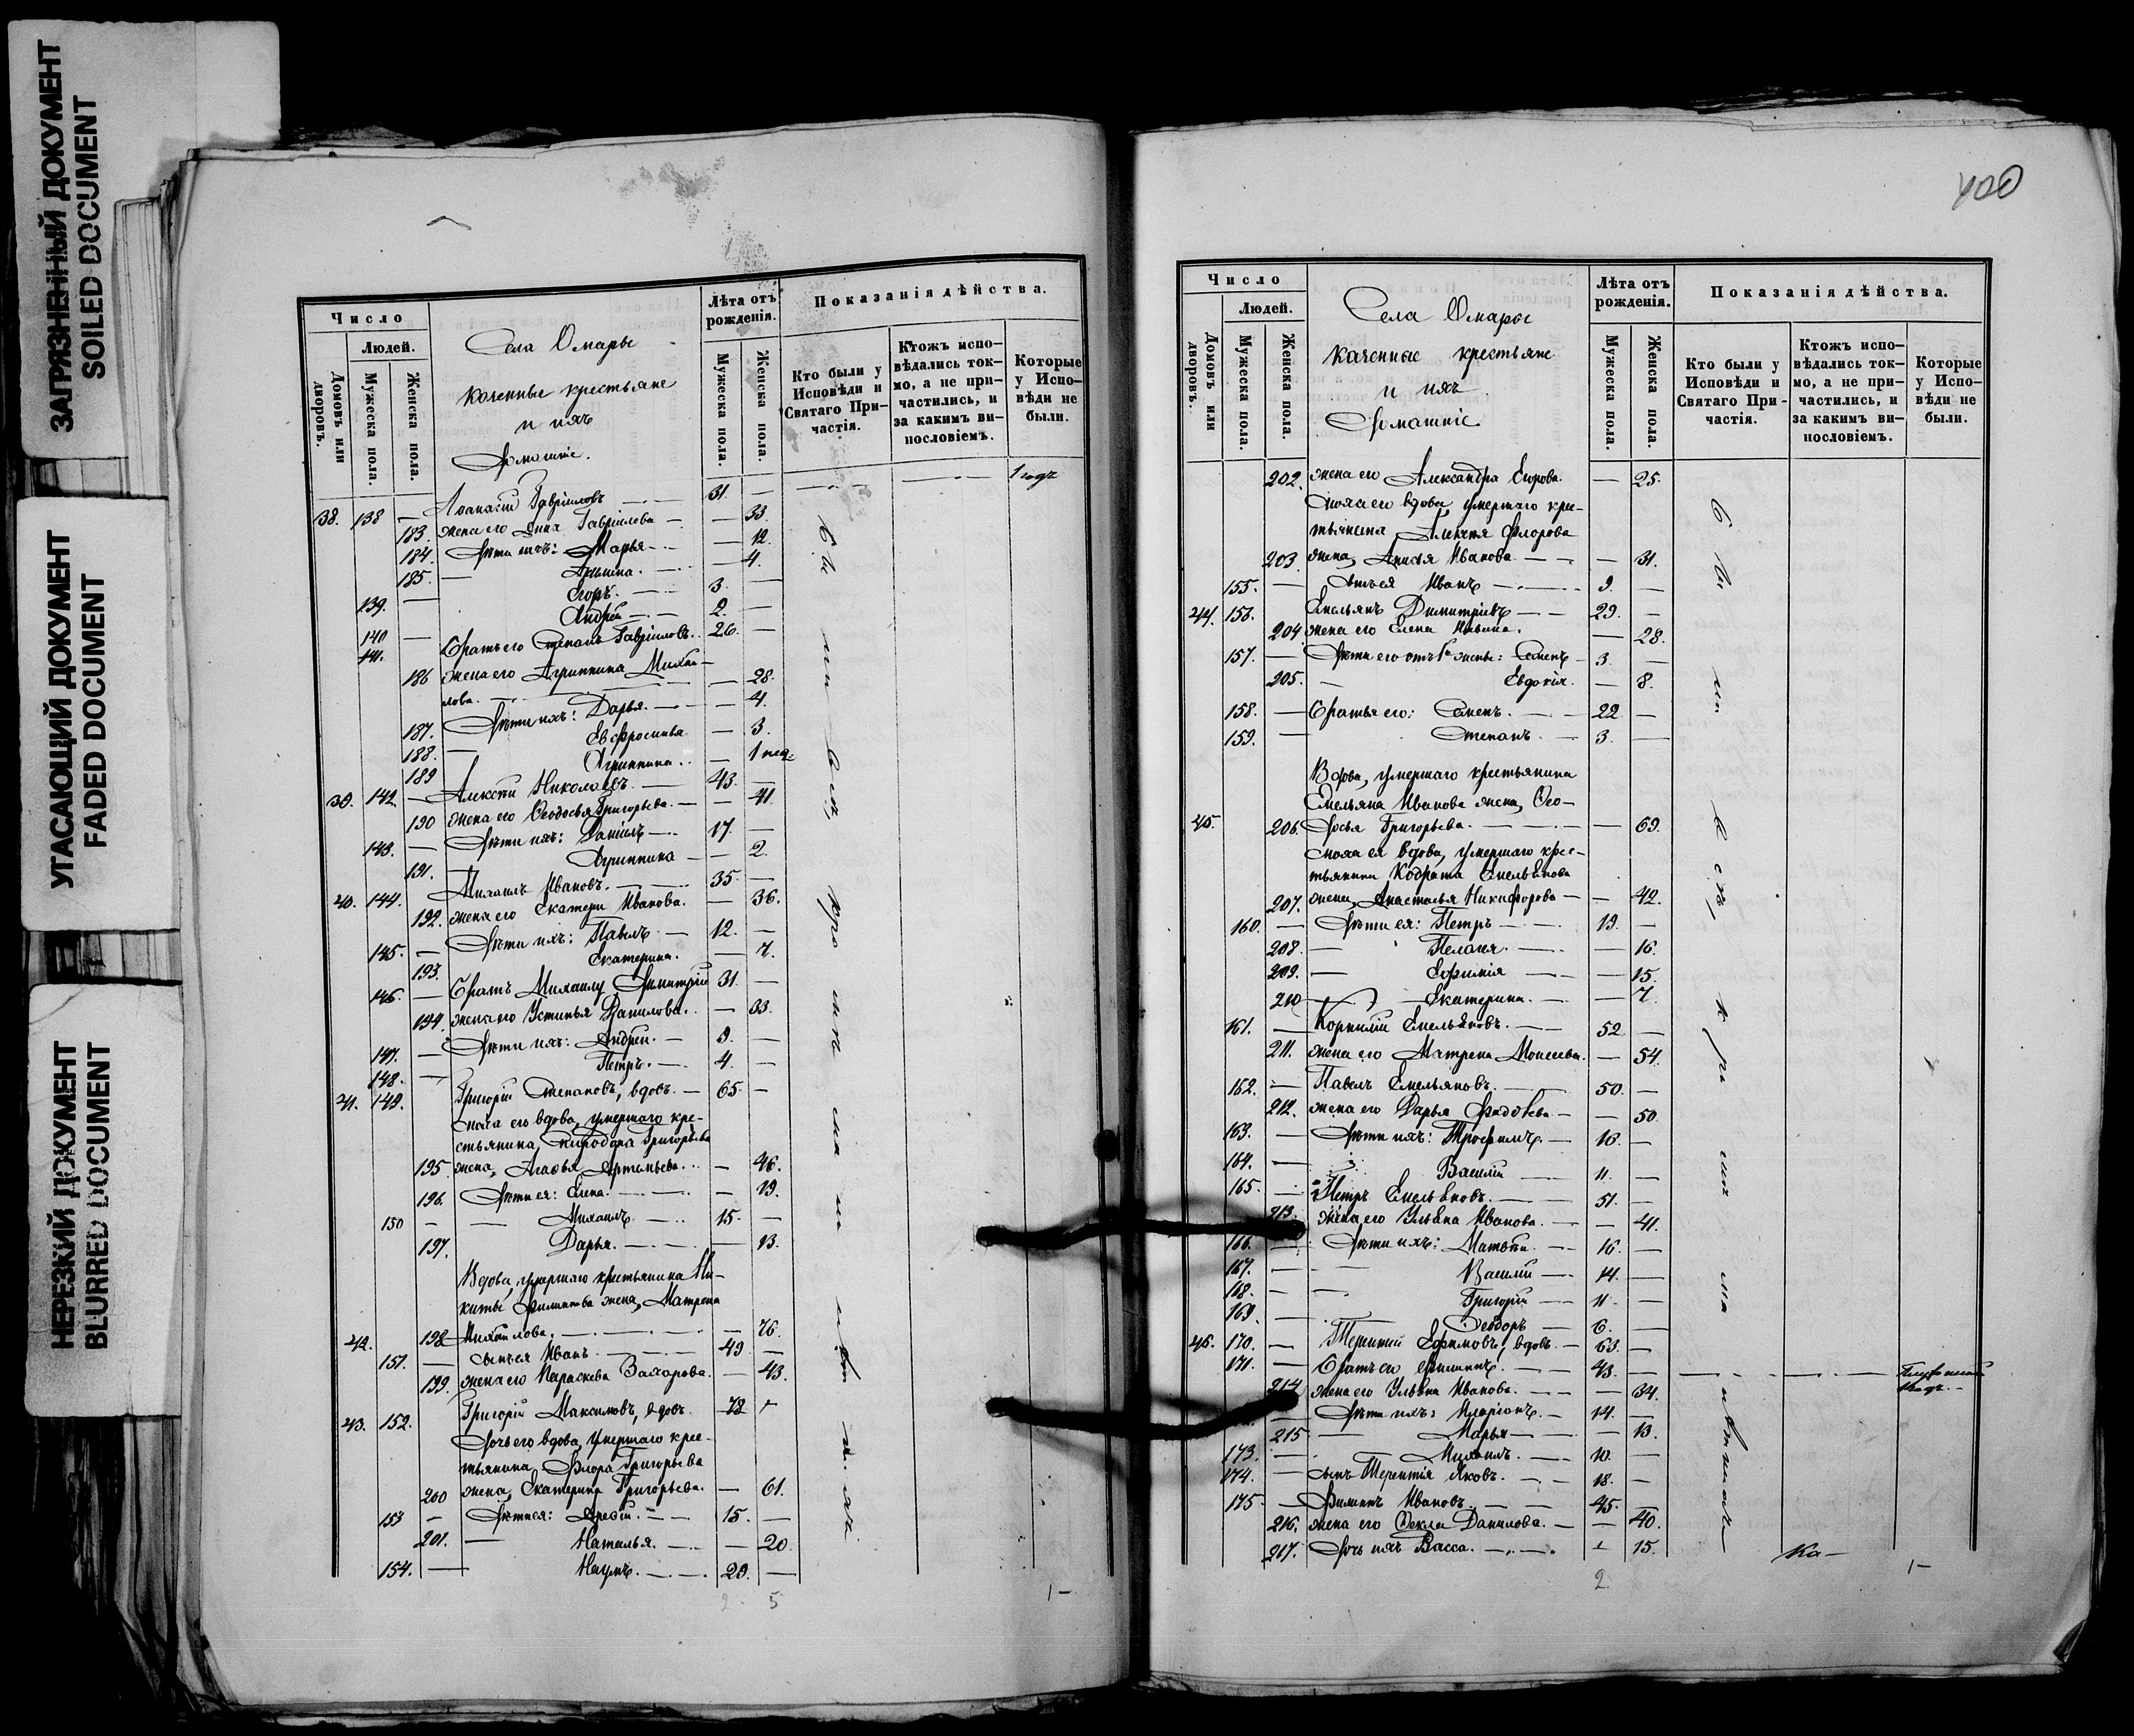 ЗАГРЯЗНЕННЫЙ ДОКУМЕНТ
SOILED DOCUMENT
УГАСАЮЩИЙ ДОКУМЕНТ
FADED DOCUMENT
НЕРЕЗКИЙ ДОКУМЕНТ
BLURRED DOCUMENT
Число
Людей.
Домовъ или дворовъ.
Мужеска пола.
Женска пола.
Села Омары
казенные крестьяне
и ихъ
домашніе.
Лѣта отъ рожденія.
Мужеска пола.
Женска пола.
Показанія дѣйства.
Кто были у Исповѣди и Святаго Причастія.
Ктожъ исповѣдались токмо, а не причастились, и за какимъ винословіемъ.
Которые у Исповѣди не были.
38. 138 — Аѳанасій Гавріиловъ 31. — 1 годъ
183. жена его Анна Гавріилова — 33.
184. Дѣти ихъ: Марья — 12.
185. — Акилина. — 4.
139. — Егоръ. 3. —
140 — Андрей 2. —
141. Братъ его Степанъ Гавріиловъ. 26. —
186 жена его Агриппина Михай-
лова. — 28.
187. Дѣти ихъ: Дарья. — 4.
188. — Евфросинья — 3.
189 Агриппина. — 1
39. 142. — Алексѣй Николаевъ. 43. —
190 жена его Ѳеодосья Григорьева. — 41.
143. — Дѣти ихъ: Даніилъ 17. —
191. — Агриппина — 2.
40. 144. Михаилъ Ивановъ. 35. —
192. жена его Екатери Иванова. — 36.
145. — Дѣти ихъ: Павелъ 12. —
193. Екатерина. — 7.
146. — Братъ Михаилу Димитрій 31. —
194. жена его Устинья Данилова. — 33.
147. — Дѣти ихъ: Андрей. 9. —
148. — Петръ. 4. —
41. 149. Григорій Степановъ, вдовъ. 65. —
сноха его вдова, умершаго кре-
стьянина, Григорьева
195. жена, Агаѳья Артемьева. — 46.
196. Дѣти ея: Елена. — 19.
150 — Михаилъ 15. —
197. Дарья. — 13.
Вдова, умершаго крестьянина Ни-
киты Филиппова жена, Матрена
42. 198 Михайлова. — 76.
151. — сынъ ея Иванъ 49 —
199. жена его Параскева Захарова. — 43.
43. 152. Григорій Максимовъ, вдовъ 72 —
дочь его вдова, умершаго крес-
тьянина, Флора Григорьева
200 жена, Екатерина Григорьева. — 61.
153 — Дѣти ея: 15. —
201. — Наталья. — 20.
154. — Наумъ. 20. —
2. 5 1 —
400
Число
Людей.
Домовъ или дворовъ.
Мужеска пола.
Женска пола.
Села Омары
казенные крестьяне
и ихъ
домашніе
Лѣта отъ рожденія.
Мужеска пола.
Женска пола.
Показанія дѣйства.
Кто были у Исповѣди и Святаго Причастія.
Ктожъ исповѣдались токмо, а не причастились, и за какимъ винословіемъ.
Которые у Исповѣди не были.
202. жена его Александра Егорова. — 25.
сноха его вдова, умершаго крес-
тьянина, Алексѣя Флорова
203. жена, Анисья Иванова — 31.
155. — сынъ ея Иванъ 9. —
44. 156. Емельянъ Димитріевъ 29. —
204 жена его Елена Ильина. — 28.
157. — Дѣти его отъ 1й жены: Семенъ 3. —
205. — Евдокія. — 8.
158. — Братья его: Семенъ. 22 —
159. — Степанъ. 3. —
Вдова, умершаго крестьянина
Емельяна Иванова жена, Ѳео-
45. 206. досья Григорьева. — 69.
сноха ея вдова, умершаго крес-
тьянина Кодрата Емельянова
207. жена, Анастасья Никифорова — 42.
160. — Дѣти ея: Петръ 19. —
208. — Пелагея. — 16.
209. — Ефимія — 15.
210 — Екатерина. — 7.
161. — Корнилій Емельяновъ. 52 —
211. жена его Матрена Моисеева. — 54.
162. — Павелъ Емельяновъ. 50. —
212. жена его Дарья Фаддѣева. — 50.
163. — Дѣти ихъ: Трофимъ. 16. —
164. — Василій 11. —
165. — Петръ Емельяновъ. 51. —
213. жена его Ульяна Иванова. — 41.
166. — Дѣти ихъ: Матвѣй. 16. —
167. — Василій 14. —
168. — Григорій 11. —
169. — Ѳеодоръ 6. —
46. 170. — Терентій Ефимовъ, вдовъ. 63. —
171. — Братъ его Филиппъ. 43. —
214 жена его Ульяна Иванова. — 34.
— Дѣти ихъ: Иларіонъ. 14. —
215 — Марья — 13.
173. — Михаилъ. 10. —
174. — сынъ Терентія Яковъ. 18. —
175. — Филиппъ Ивановъ. 45. —
216. жена его Ѳекла Данилова. — 40.
217. дочь ихъ Васса. — 15.
2. 1 —